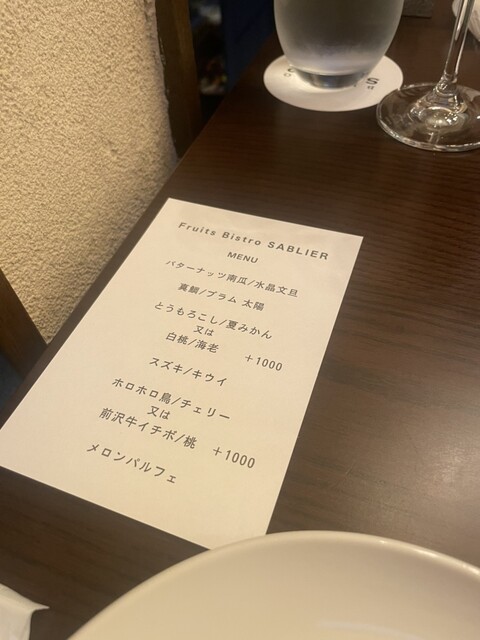 Fruits Bistro SABLIER
MENU
バターナッツ南瓜/水晶文旦
真鯛/プラム 太陽
とうもろこし/夏みかん
又は
白桃/海老 +1000
スズキ/キウイ
ホロホロ鳥/チェリー
又は
前沢牛イチボ/桃 +1000
メロンパルフェ